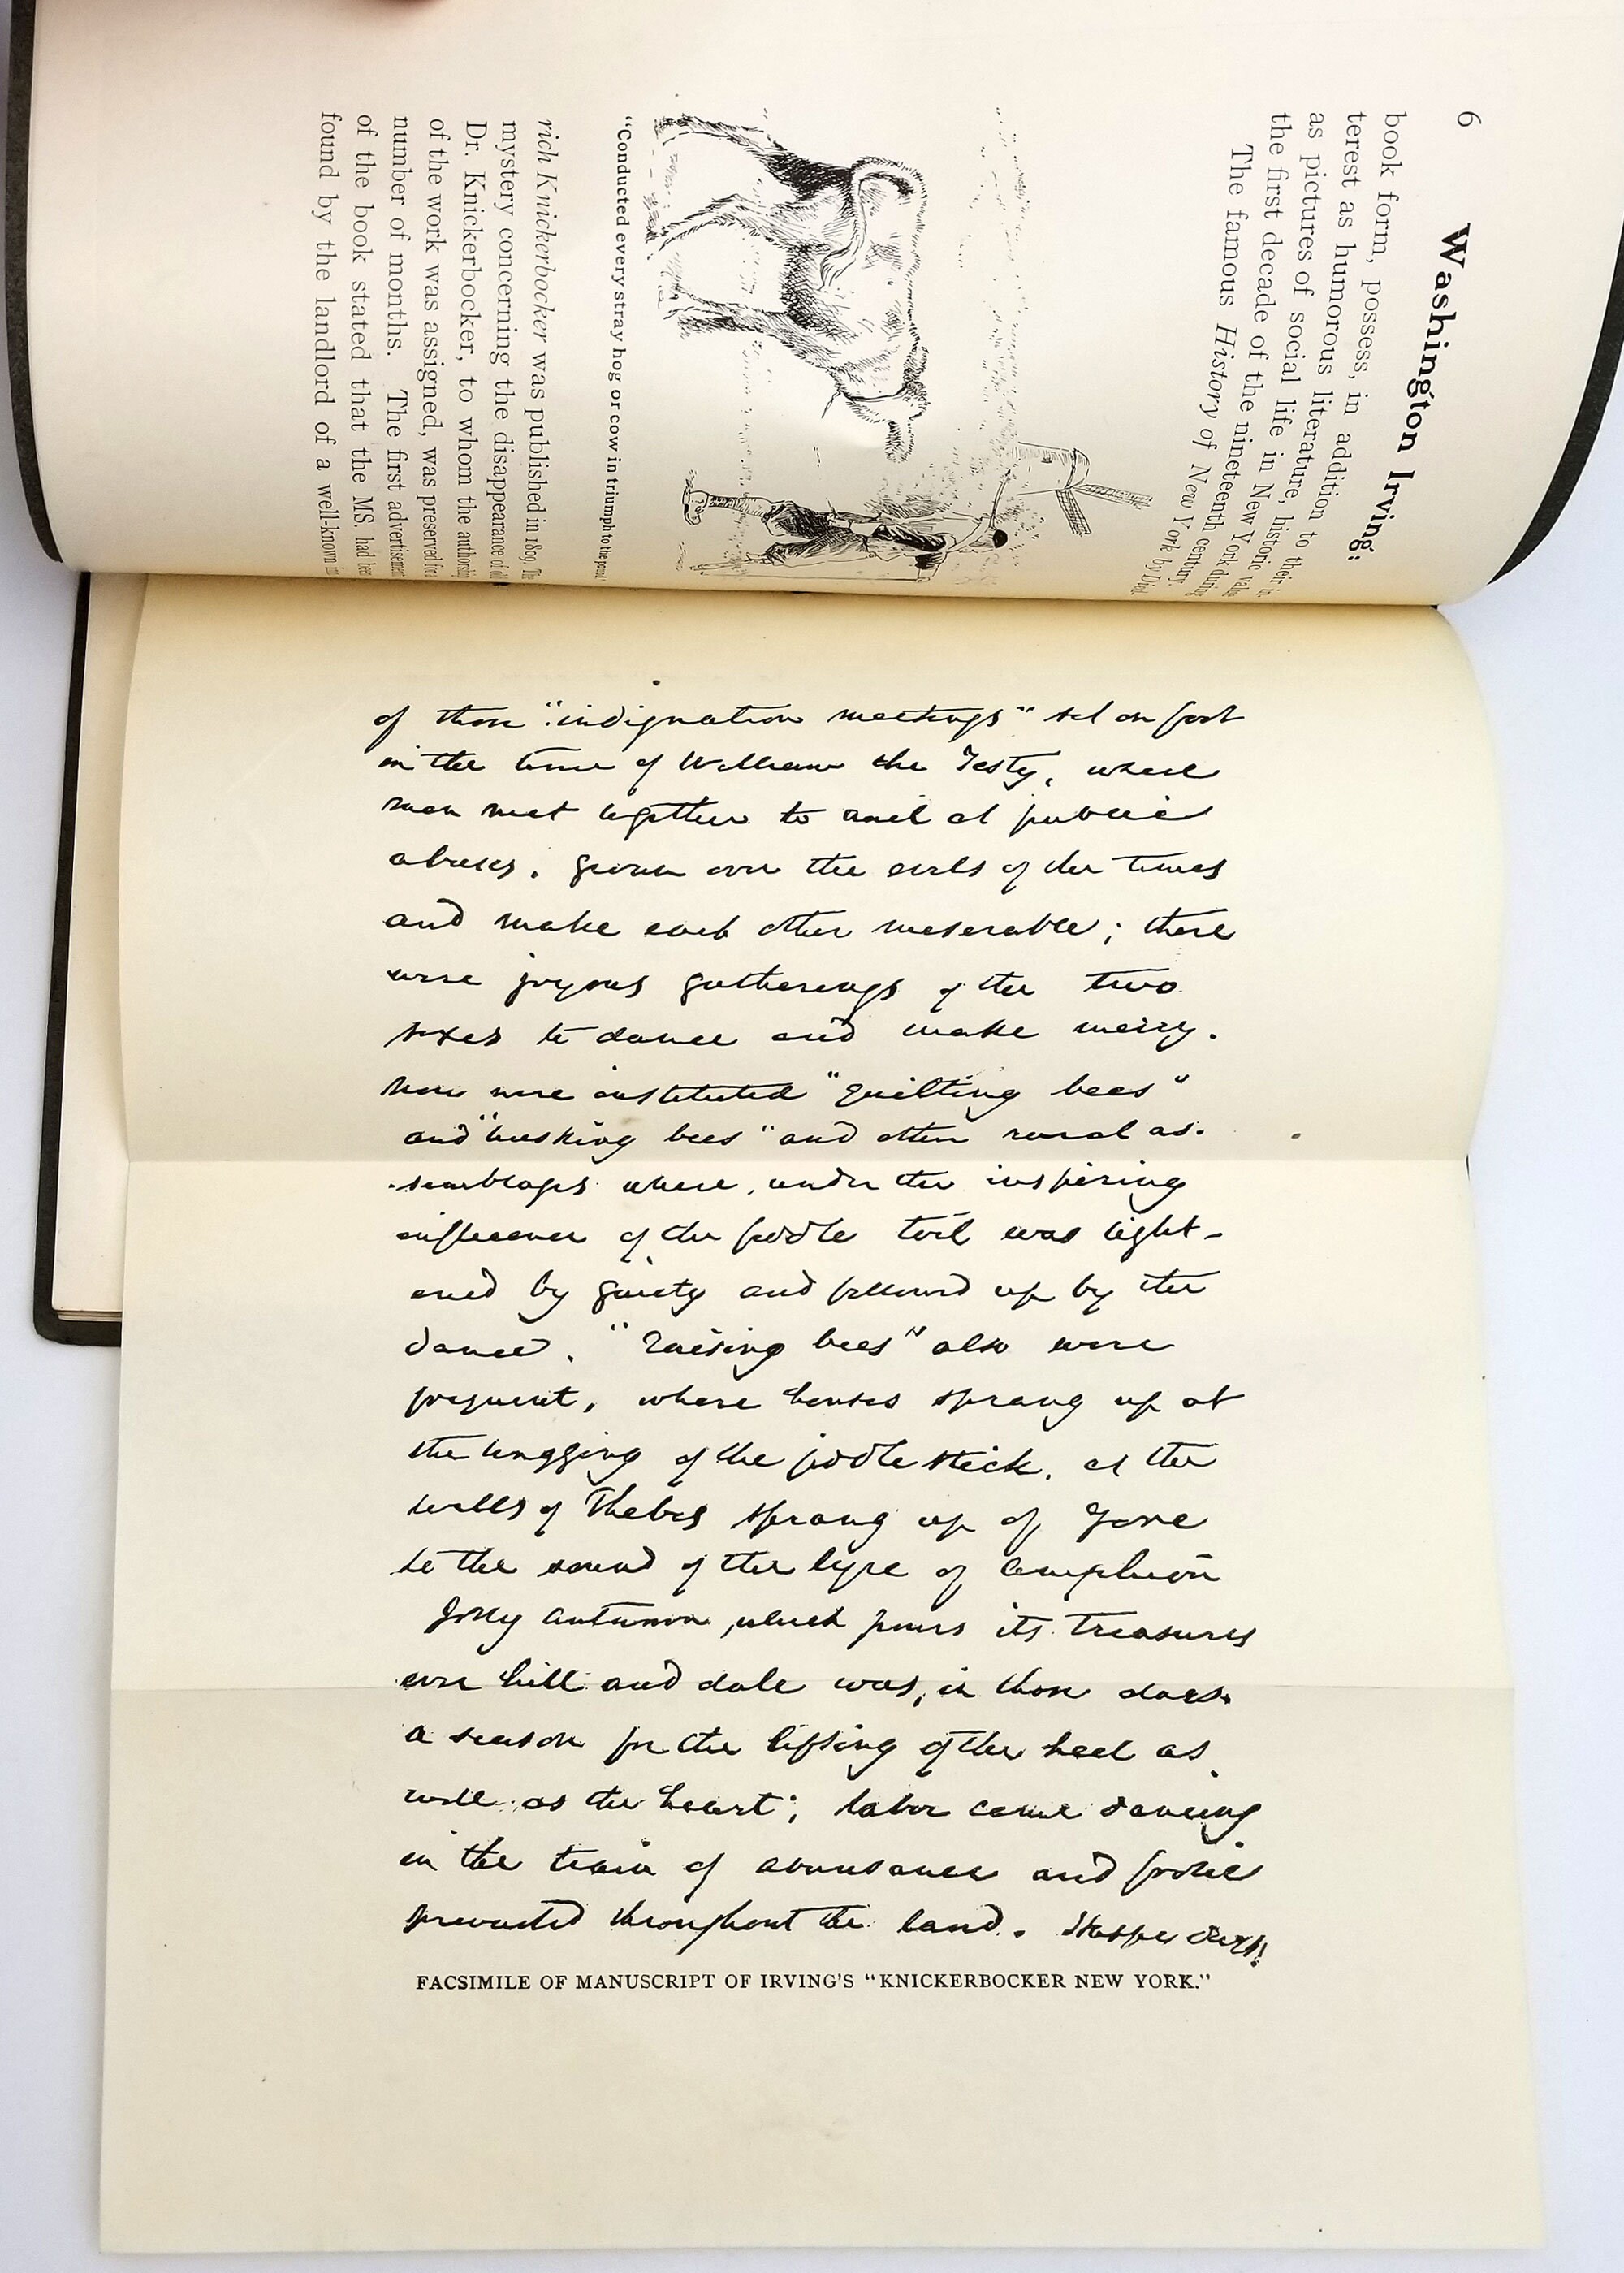 6
Washington Irving:
book form, possess, in addition to their in-
terest as humorous literature, historic value
as pictures of social life in New York during
the first decade of the nineteenth century.
The famous History of New York by Died-
"Conducted every stray hog or cow in triumph to the pound
rich Knickerbocker was published in 1809. The
mystery concerning the disappearance of old
Dr. Knickerbocker, to whom the authorship
of the work was assigned, was preserved for a
number of months. The first advertisement
of the book stated that the MS. had been
found by the landlord of a well-known
of those "indignation meetings" set on foot
in the time of William the Testy, where
men met together to rail at public
abuses, groan over the evils of the times
and make each other miserable; there
were joyous gatherings of the two
sexes to dance and make merry.
Now were instituted "quilting bees"
and "husking bees" and other rural as-
semblages where, under the inspiring
influence of the fiddle toil was light-
ened by gaiety and followed up by the
dance. "Raising bees" also were
frequent, where houses sprang up at
the wagging of the fiddle stick, as the
walls of Thebes sprang up of yore
to the sound of the lyre of Amphion
Jolly autumn, which pours its treasures
over hill and dale was, in those days
a season for the lifting of the heel as
well as the heart; labor came dancing
in the train of abundance and frolic
prevailed throughout the land. Happy days!
FACSIMILE OF MANUSCRIPT OF IRVING'S "KNICKERBOCKER NEW YORK."